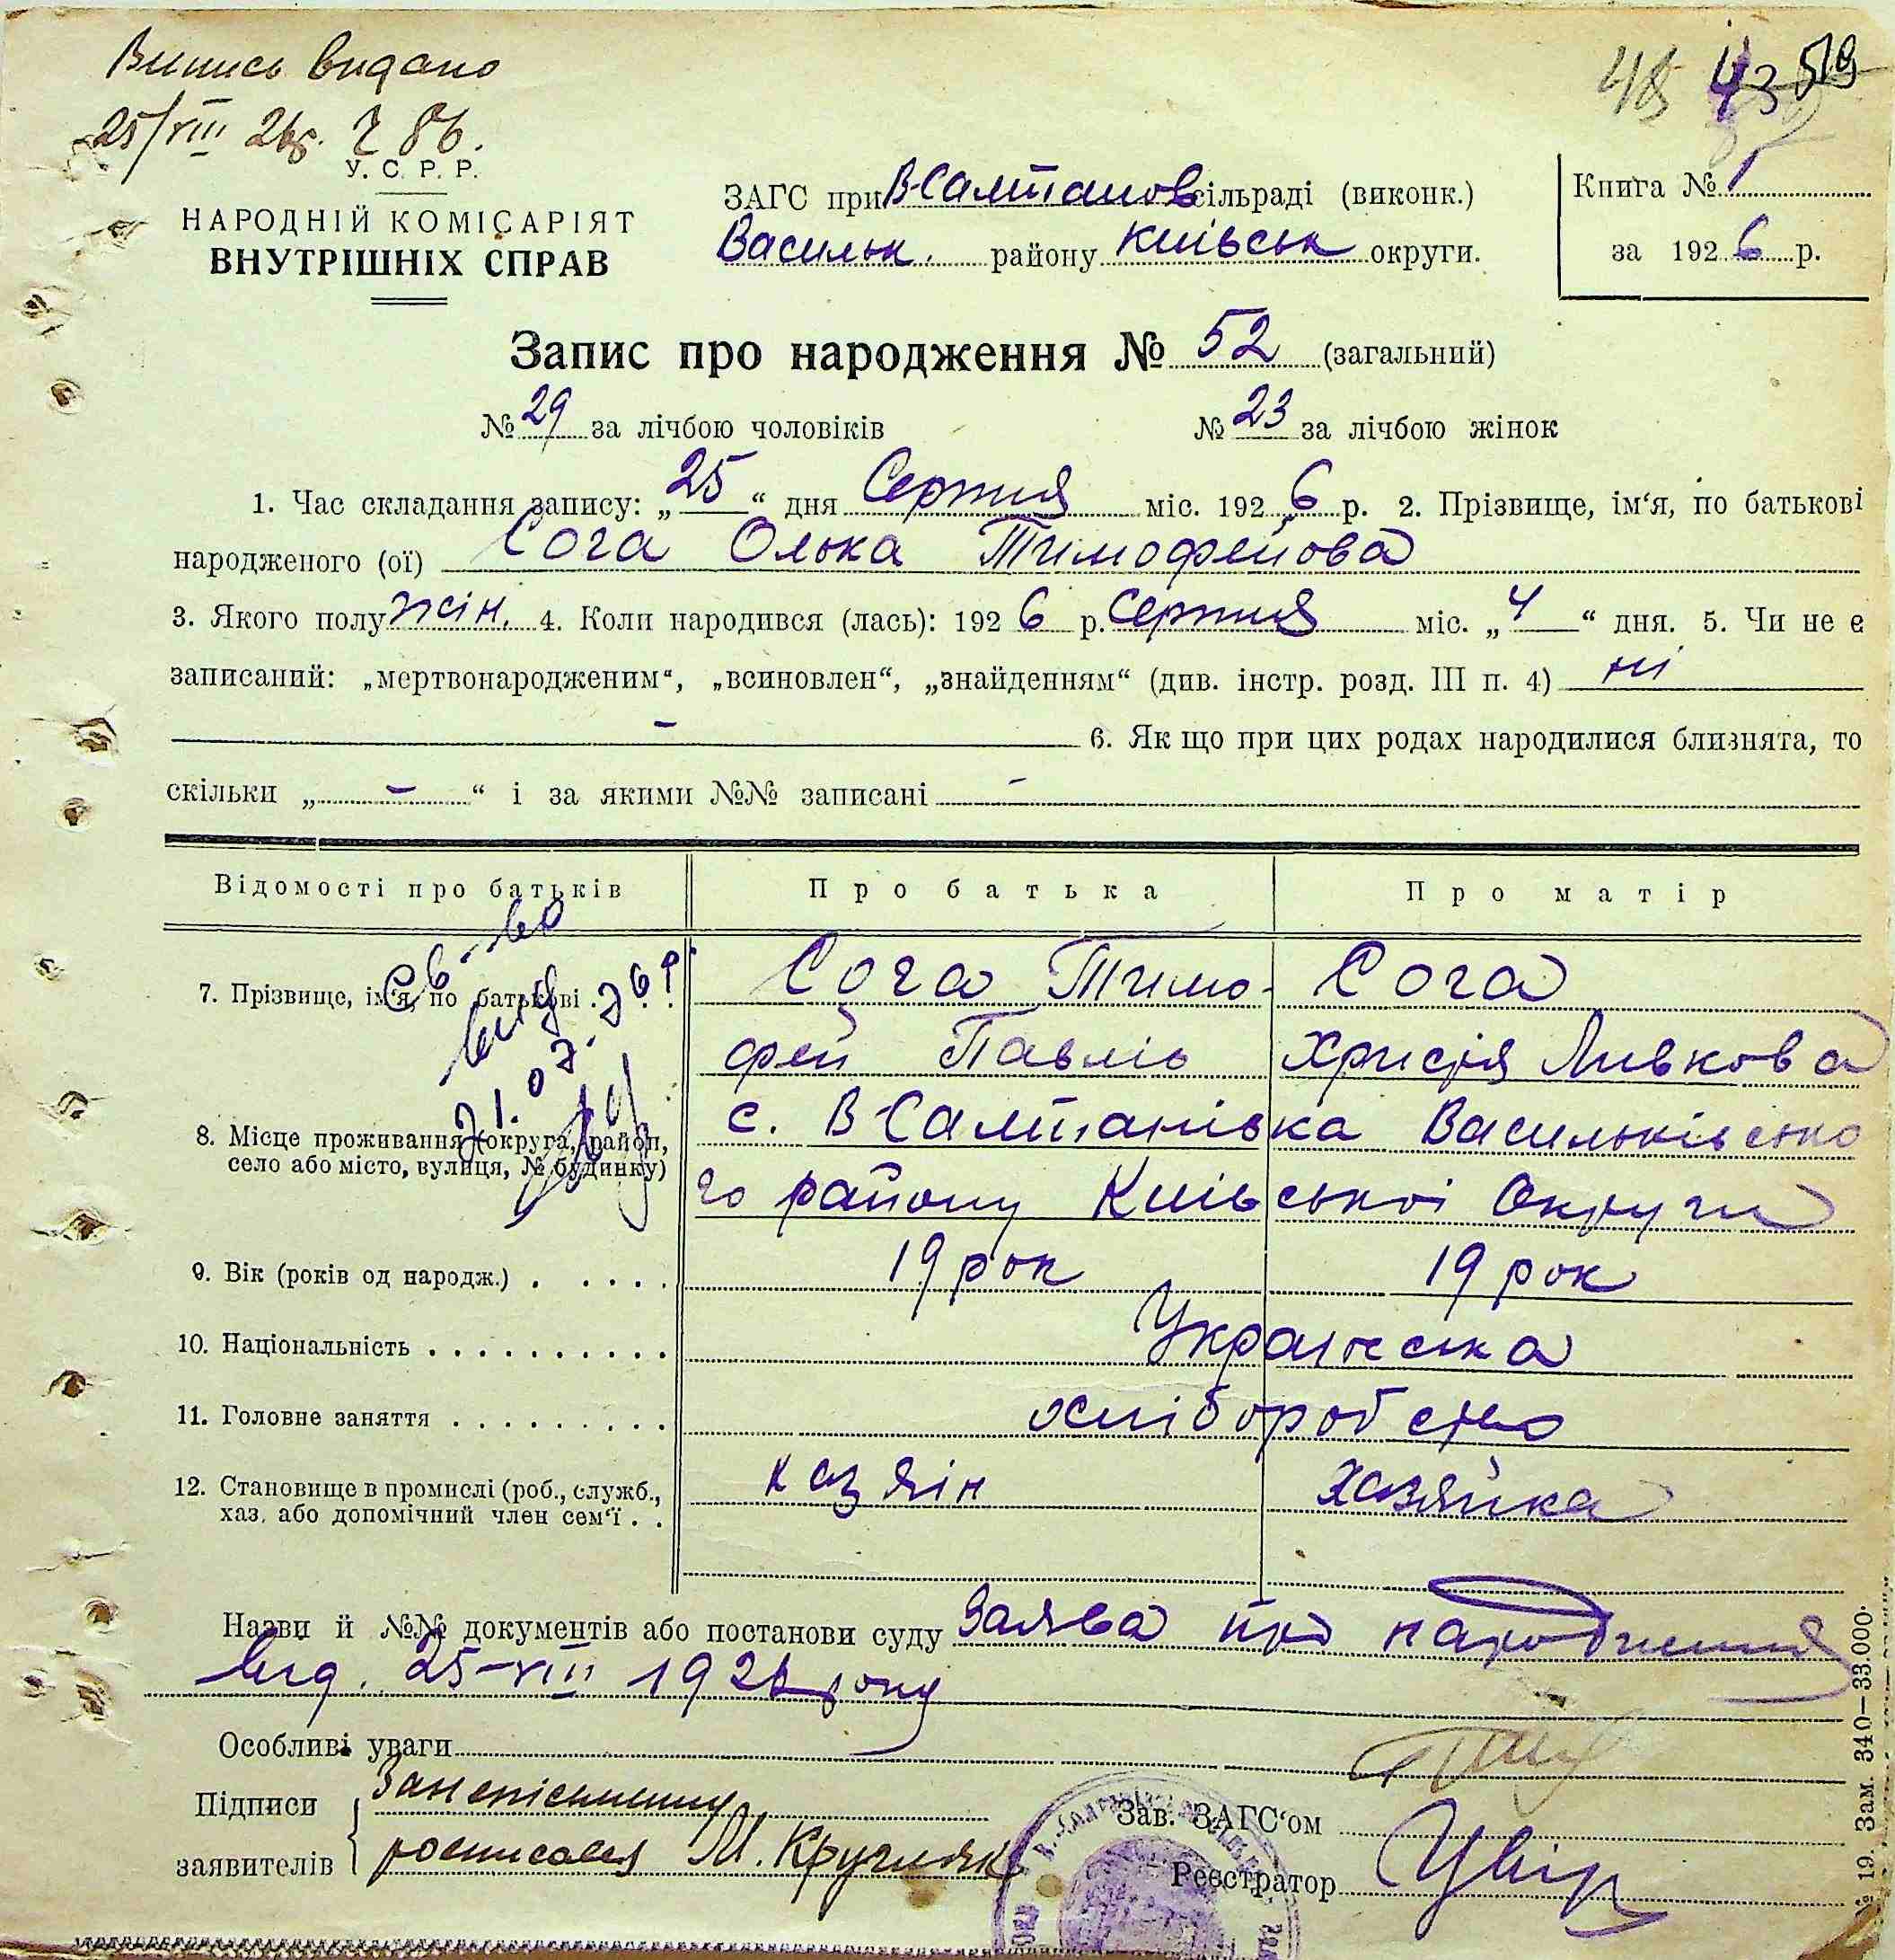 Випись видано
25/VIII 26р. 86.
48 43 52
У. С. Р. Р.
НАРОДНІЙ КОМІСАРІЯТ
ВНУТРІШНІХ СПРАВ
ЗАГС при В-Салтанов сільраді (виконк.)
Васильк. району Київськ округи.
Книга № 1
за 1926 р.
Запис про народження № 52 (загальний)
№ 29 за лічбою чоловіків № 23 за лічбою жінок
1. Час складання запису: „25“ дня Серпня міс. 1926 р. 2. Прізвище, ім‘я, по батькові
народженого (ої) Сога Олька Тимофейова
3. Якого полу жін. 4. Коли народився (лась): 1926 р. Серпня міс. „4“ дня. 5. Чи не є
записаний: „мертвонародженим“, „всиновлен“, „знайденням“ (див. інстр. розд. III п. 4) ні
– 6. Як що при цих родах народилися близнята, то
скільки „ – “ і за якими №№ записані –
Відомості про батьків Про батька Про матір
7. Прізвище, ім‘я, по батькові . Сога Тимо- Сога
фей Павлів Христя Ливкова
8. Місце проживання (округа, район,
село або місто, вулиця, № будинку)
с. В-Салтанівка Васильківсько
го району Київської Округи
Св-во
вид
21.07.
9. Вік (років од народж.) . . . . . 19 рок 19 рок
10. Національність . . . . . . . . . . Українська
11. Головне заняття . . . . . . . . . хліборобство
12. Становище в промислі (роб., служб.,
хаз. або допомічний член сем‘ї . .
хазяін хазяйка
Назви й №№ документів або постанови суду Заява про народження
від. 25-VIII 1926 року
Особливі уваги
Підписи
заявителів
Занепісменну
росписався М. Кругляк
Зав. ЗАГС‘ом
Реєстратор
№ 19. Зам. 340—33.000.